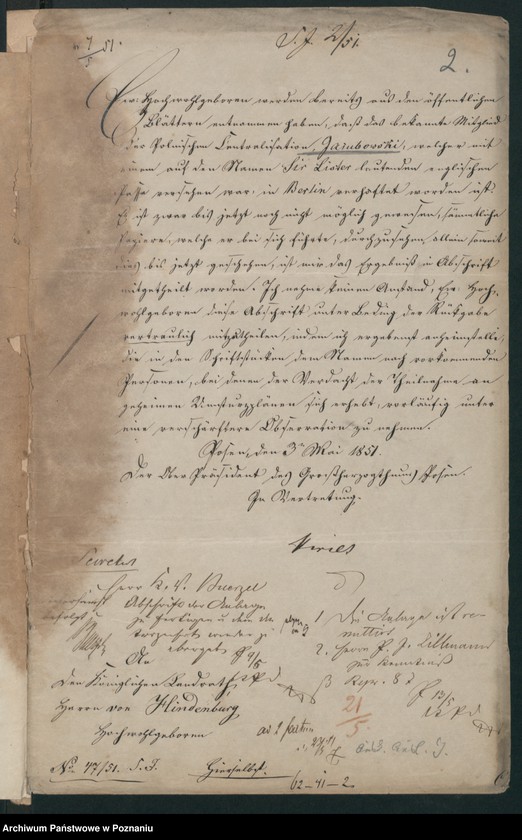 7/5 51.
S. J. 2/51.
2.
Ew: Hochwohlgeboren werden bereits aus den öffentlichen
Blättern entnommen haben, daß das bekannte Mitglied
der Polnischen Centralisation, Jarubowski, welcher mit
einem auf den Namen Sir Lister lautenden englischen
Passe versehen war, in Berlin verhaftet worden ist.
Es ist zwar bis jetzt noch nicht möglich gewesen, sämmtliche
Papiere, welche er bei sich führte, durchzusehen, allein soweit
dies bis jetzt geschehen, ist mir das Ergebniß in Abschrift
mitgetheilt worden. Ich nehme keinen Anstand, Ew: Hoch-
wohlgeboren diese Abschrift unter Beding der Rückgabe
vertraulich mitzutheilen, indem ich ergebenst anheimstelle,
die in den Schriftstücken dem Namen nach vorkommenden
Personen, bei denen der Verdacht der Theilnahme an
geheimen Umsturzplänen sich erhebt, vorläufig unter
eine verschärftere Observation zu nehmen.
Posen, den 3n Mai 1851.
Der Ober Präsident des Großherzogthums Posen.
In Vertretung.
Secreta
Herr K. V.
Abschrift der Anlage
zu fertigen u den
An
9/5
Den Königlichen Landrath
Herrn von Hindenburg
Hochwohlgeboren
No. 47/51. S. J.
Hierselbst.
1 Die Anlage ist re-
mittirt
2. Herrn
zur Kenntniß
3 Repr. 8 d
13/5
21/5
62-41-2
Archiwum Państwowe w Poznaniu
Archiwum Państwowe w Poznaniu